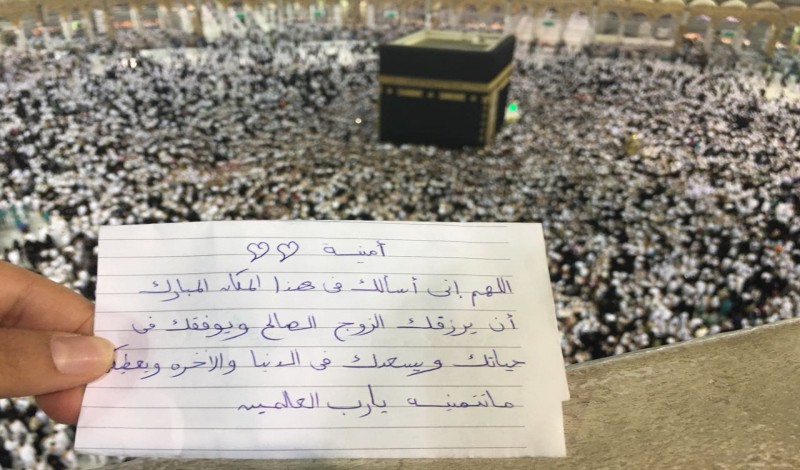 أمنية ♡♡
اللهم إنى أسألك فى هذا المكان المبارك
أن يرزقك الزوج الصالح ويوفقك فى
حياتك ويسعدك فى الدنيا والآخره ويعطيك
ماتتمنينه يارب العالمين